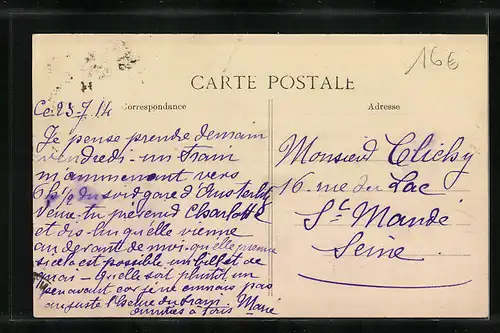 16€
CARTE POSTALE
Correspondance
Adresse
Ce 23-7 14
Je pense prendre demain
vendredi - un train
m'ammenant vers
6h ½ du soir gare d'Austerlitz
Veux-tu prévenir Charlotte
et dis-lui qu'elle vienne
au devant de moi - qu'elle prenne
si cela est possible un billet de
quai - Qu'elle soit plutôt un
peu avant car je ne connais pas
au juste l'heure du train - Marie
à Paris
Monsieur Clichy
16 rue du Lac
St Mandé
Seine